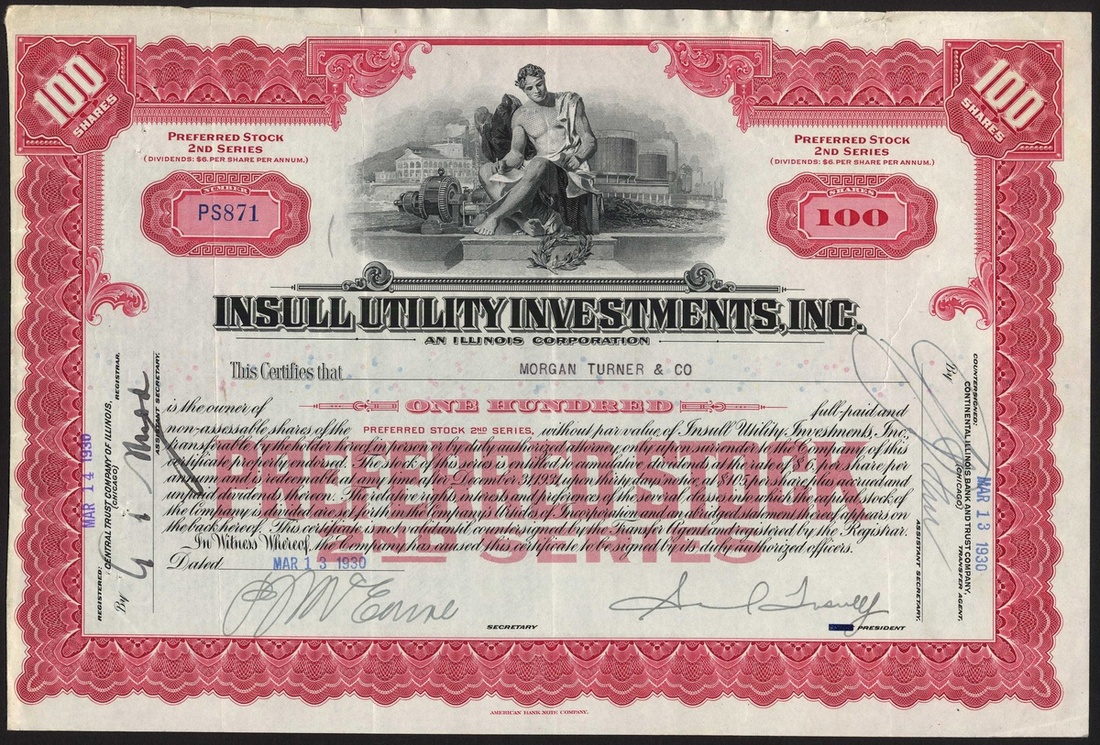 100 SHARES
100 SHARES
PREFERRED STOCK
2ND SERIES
(DIVIDENDS: $6. PER SHARE PER ANNUM.)
NUMBER
PS871
PREFERRED STOCK
2ND SERIES
(DIVIDENDS: $6. PER SHARE PER ANNUM.)
SHARES
100
INSULL UTILITY INVESTMENTS, INC.
AN ILLINOIS CORPORATION
This Certifies that MORGAN TURNER & CO
is the owner of ONE HUNDRED full-paid and
non-assessable shares of the PREFERRED STOCK 2ND SERIES, without par value of Insull Utility Investments, Inc.,
transferable by the holder hereof in person or by duly authorized attorney, only upon surrender to the Company of this
certificate properly endorsed. The stock of this series is entitled to cumulative dividends at the rate of $6. per share per
annum and is redeemable at any time after December 31, upon thirty days notice, at $105 per share plus accrued and
unpaid dividends thereon. The relative rights, interests and preferences of the several classes into which the capital stock of
the Company is divided are set forth in the Company's Articles of Incorporation and an abridged statement thereof appears on
the back hereof. This certificate is not valid until countersigned by the Transfer Agent and registered by the Registrar.
In Witness Whereof, the Company has caused this certificate to be signed by its duly authorized officers.
PREFERRED STOCK
2ND SERIES
Dated MAR 13 1930
SECRETARY
Samuel Insull
PRESIDENT
REGISTERED:
CENTRAL TRUST COMPANY OF ILLINOIS,
(CHICAGO)
REGISTRAR.
MAR 14 1930
By
ASSISTANT SECRETARY.
COUNTERSIGNED:
CONTINENTAL ILLINOIS BANK AND TRUST COMPANY,
(CHICAGO)
TRANSFER AGENT,
MAR 13 1930
By
ASSISTANT SECRETARY.
AMERICAN BANK NOTE COMPANY.